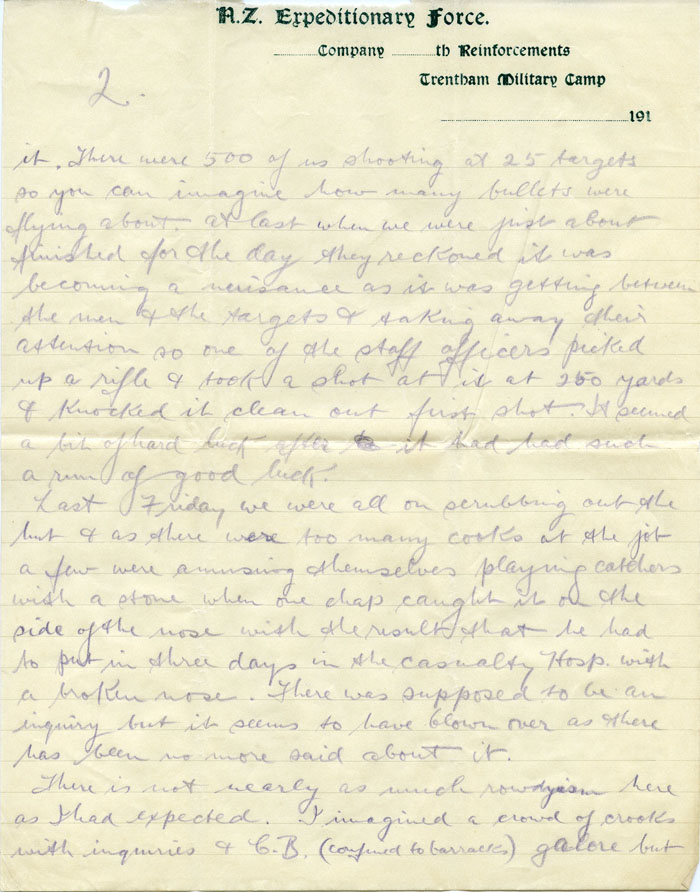 N.Z. Expeditionary Force.
Company th Reinforcements
Trentham Military Camp
191
2.
it. There were 500 of us shooting at 25 targets
so you can imagine how many bullets were
flying about. At last when we were just about
finished for the day they reckoned it was
becoming a nerisance as it was getting between
the men & the targets & taking away their
attention so one of the staff officers picked
up a rifle & took a shot at it at 250 yards
& knocked it clean out first shot. It seemed
a bit of hard luck after it had had such
a run of good luck.
Last Friday we were all on scrubbing out the
hut & as there were too many cooks at the job
a few were amusing themselves playing catchers
with a stone when one chap caught it on the
side of the nose with the result that he had
to put in three days in the casualty Hosp. with
a broken nose. There was supposed to be an
inquiry but it seems to have blown over as there
has been no more said about it.
There is not nearly as much rowdyism here
as I had expected. I imagined a crowd of crooks
with inquiries & C.B. (confined to barracks) galore but